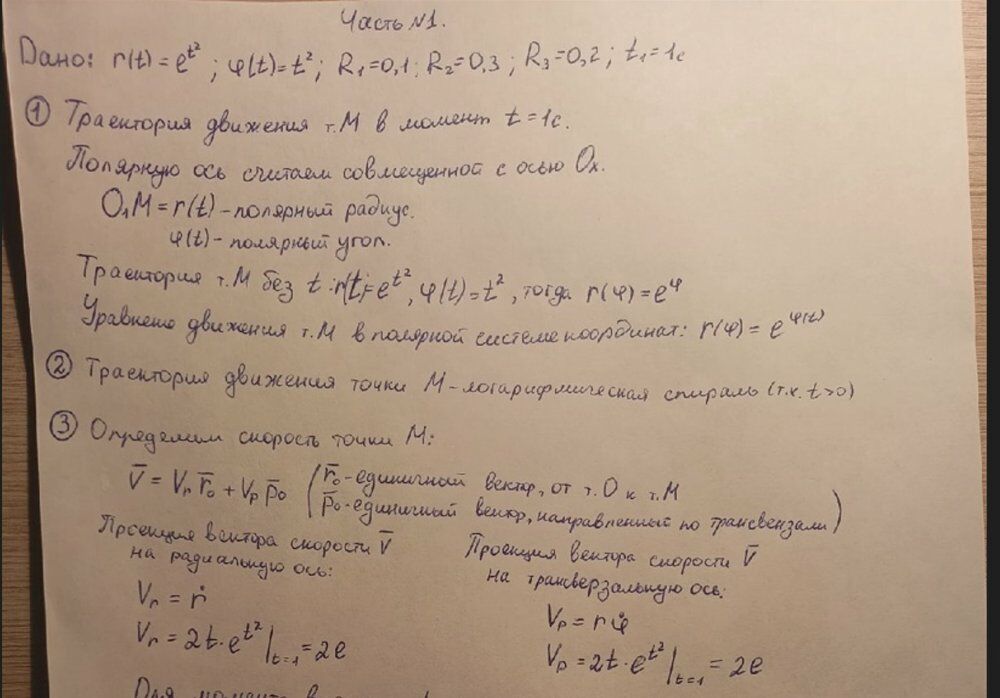 Часть №1.
Дано: r(t) = e^{t^2}; φ(t) = t^2; R_1=0,1; R_2=0,3; R_3=0,2; t_1=1с
① Траектория движения т.М в момент t=1с.
Полярную ось считаем совмещенной с осью Ox.
O_1M = r(t) - полярный радиус.
φ(t) - полярный угол.
Траектория т.М без t: r(t)=e^{t^2}, φ(t)=t^2, тогда r(φ)=e^φ
движения т.М в полярной системе координат: r(φ) = e^{φ(t)}
② Траектория движения точки М - логарифмическая спираль (т.к. t>0)
③ Определим скорость точки М:
V̄ = V_r r̄_0 + V_p p̄_0 (r̄_0 - единичный вектор, от т.О к т.М
p̄_0 - единичный вектор, направленный по трансвензами)
Проекция вектора скорости V̄
на радиальную ось:
V_r = ṙ
V_r = 2t·e^{t^2}|_{t=1} = 2e
Проекция вектора скорости V̄
на трансверзальную ось:
V_p = rφ̇
V_p = 2t·e^{t^2}|_{t=1} = 2e